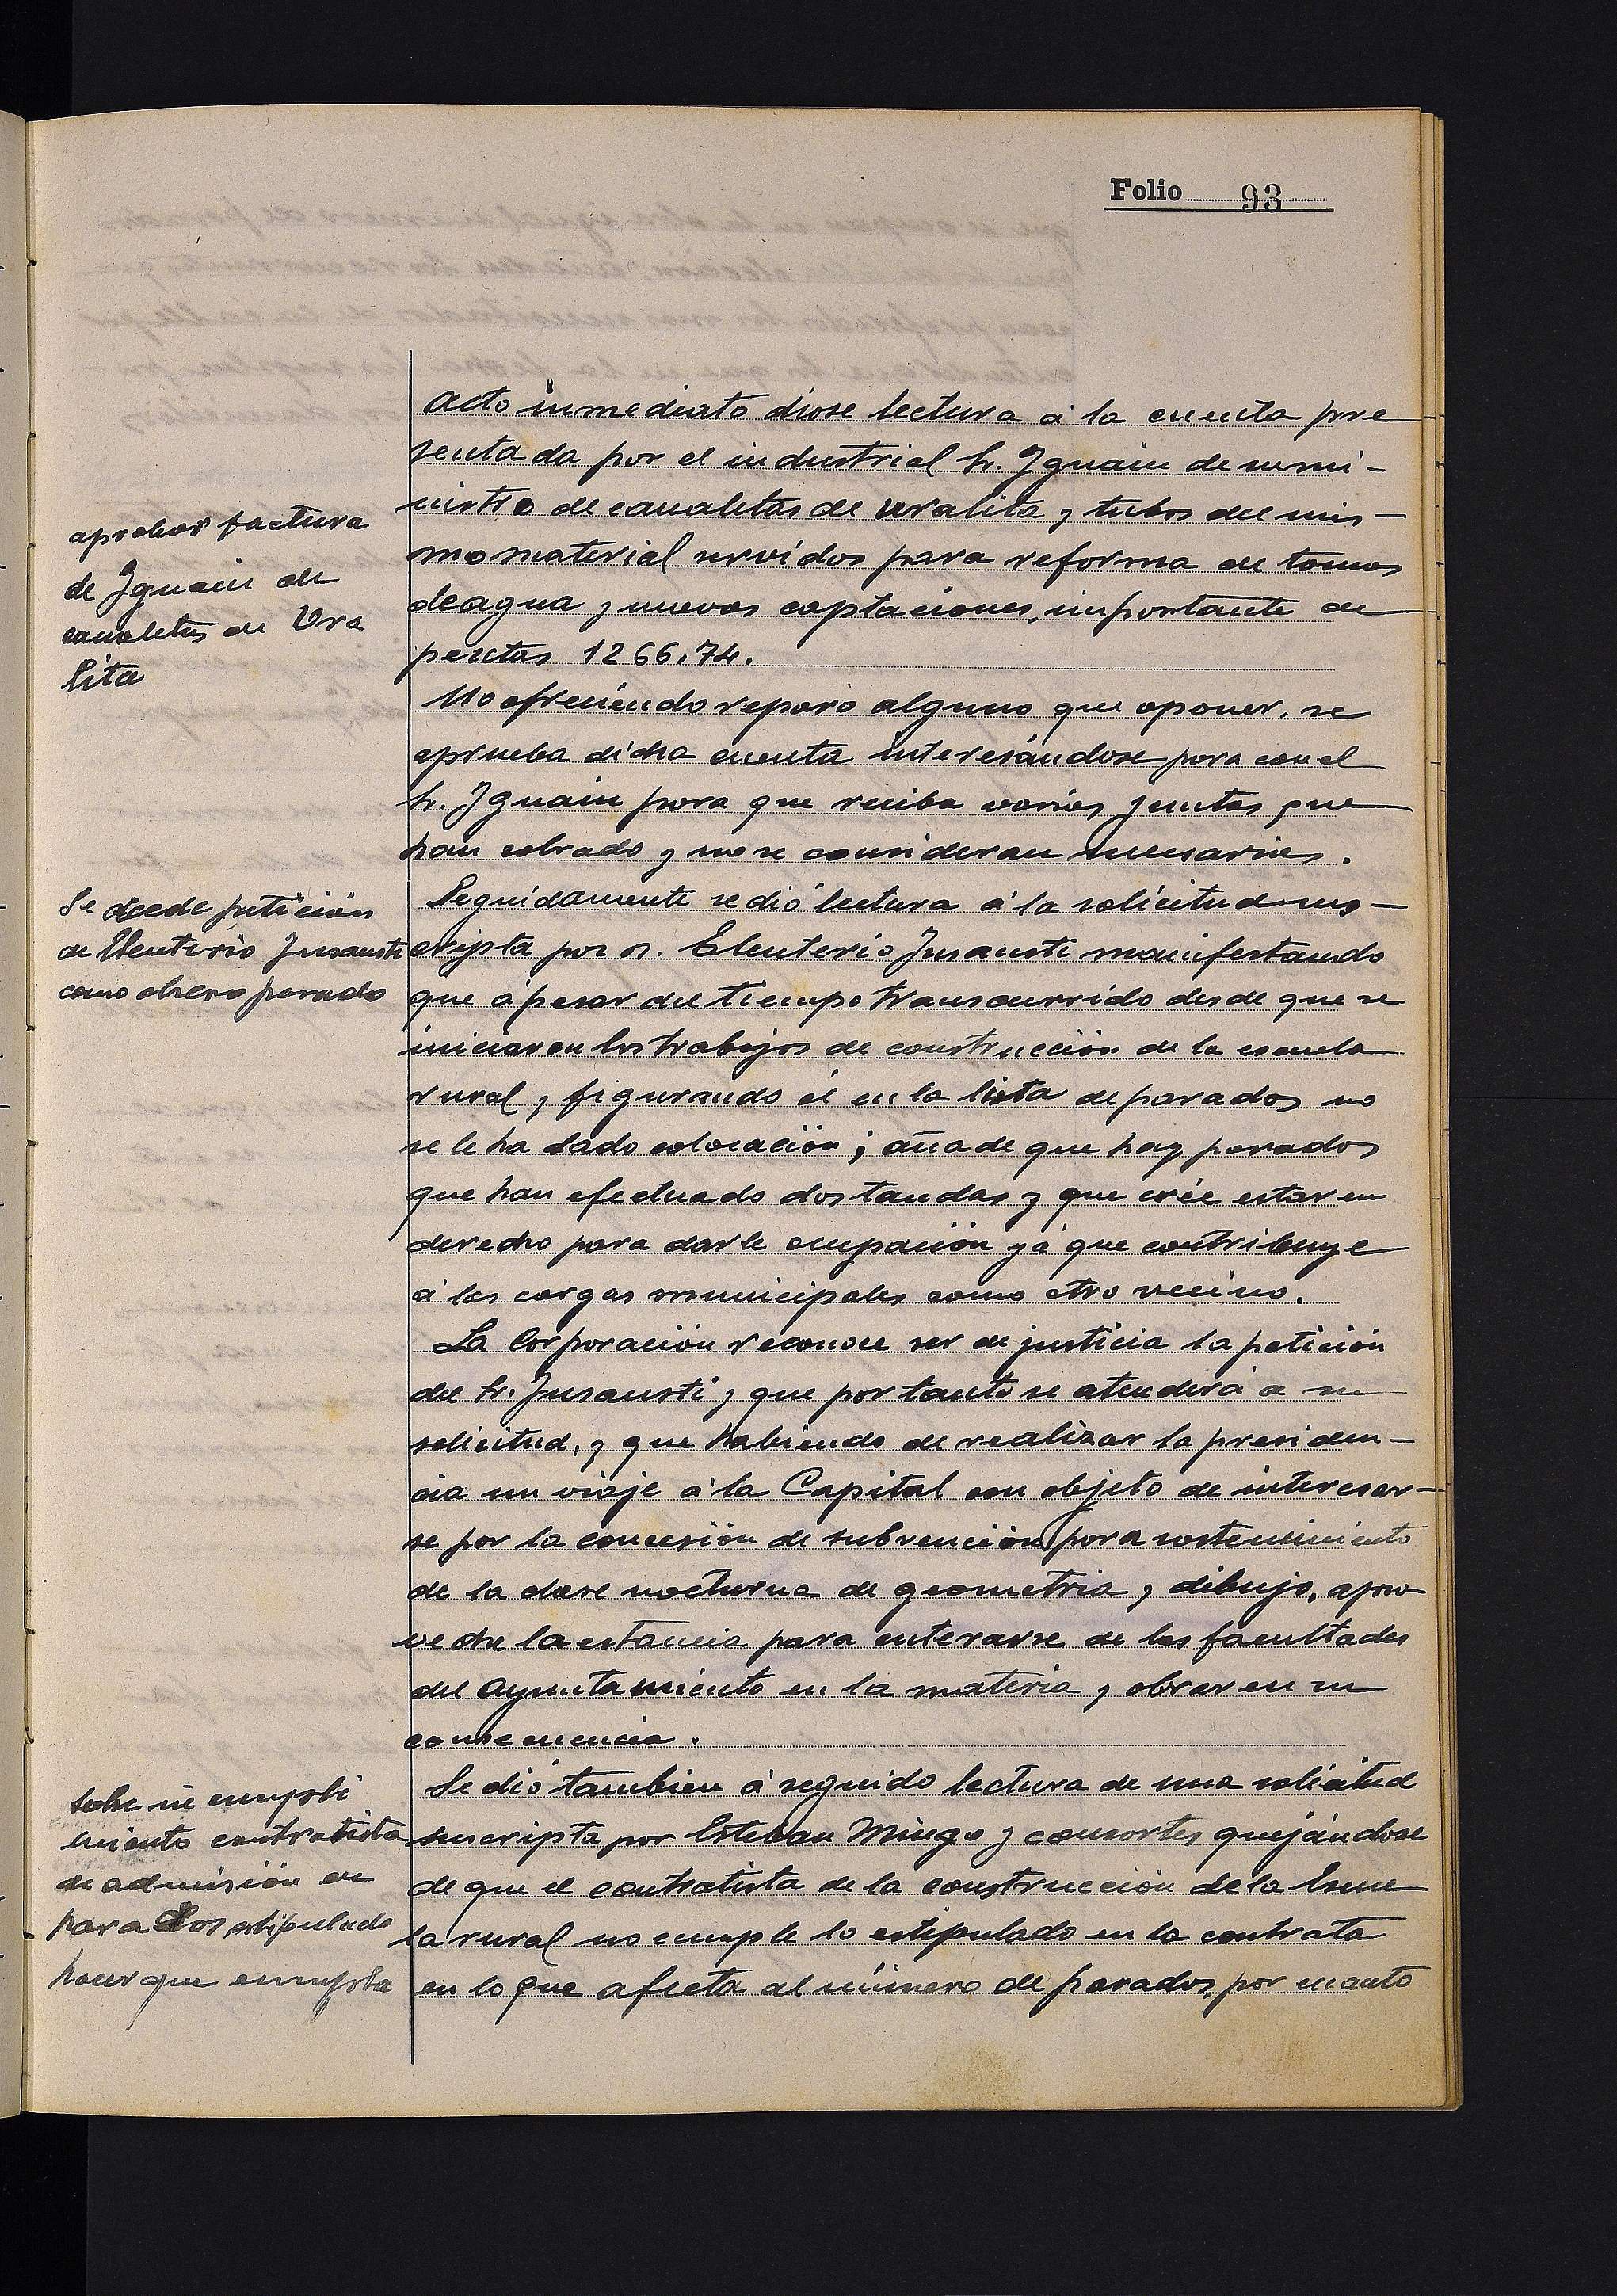 Folio 93
Acto inmediato diose lectura á la cuenta pre
sentada por el industrial Sr. Iguain de sumi-
nistro de canaletas de uralita y tubos del mis-
mo material servidos para reforma de tomas
de agua y nuevas captaciones, importante de
pesetas 1266,74.
aprobar factura
de Iguain de
canaletas de Ura
lita
No ofreciendo reparo alguno que oponer, se
aprueba dicha cuenta interesándose para con el
Sr. Iguain para que reciba varias juntas que
han sobrado y no se consideran necesarias.
Seguidamente se dió lectura á la solicitud sus-
cripta por D. Eleuterio Insausti manifestando
que á pesar del tiempo transcurrido desde que se
iniciaron los trabajos de construcción de la escuela
rural, y figurando él en la lista de parados no
se le ha dado colocación; añade que hay parados
que han efectuado dos tandas y que crée estar en
derecho para darle ocupación yá que contribuye
á las cargas municipales como otro vecino.
Se accede petición
de Eleuterio Insausti
como obrero parado
La Corporación reconoce ser de justicia la petición
del Sr. Insausti y que por tanto se atenderá a su
solicitud, y que habiendo de realizar la presiden-
cia un viaje á la Capital con objeto de interesar-
se por la concesión de subvención para sostenimiento
de la clase nocturna de geometria y dibujo, apro-
veche la estancia para enterarse de las facultades
del Ayuntamiento en la materia y obrar en su
consecuencia.
Se dió tambien á seguido lectura de una solicitud
suscripta por Esteban Mingo y consortes quejándose
de que el contratista de la construcción de la Escue
la rural no cumple lo estipulado en la contrata
en lo que afecta al número de parados, por cuanto
sobre in cumpli
miento contratista
de admisión de
parados estipulado
hacer que cumpla